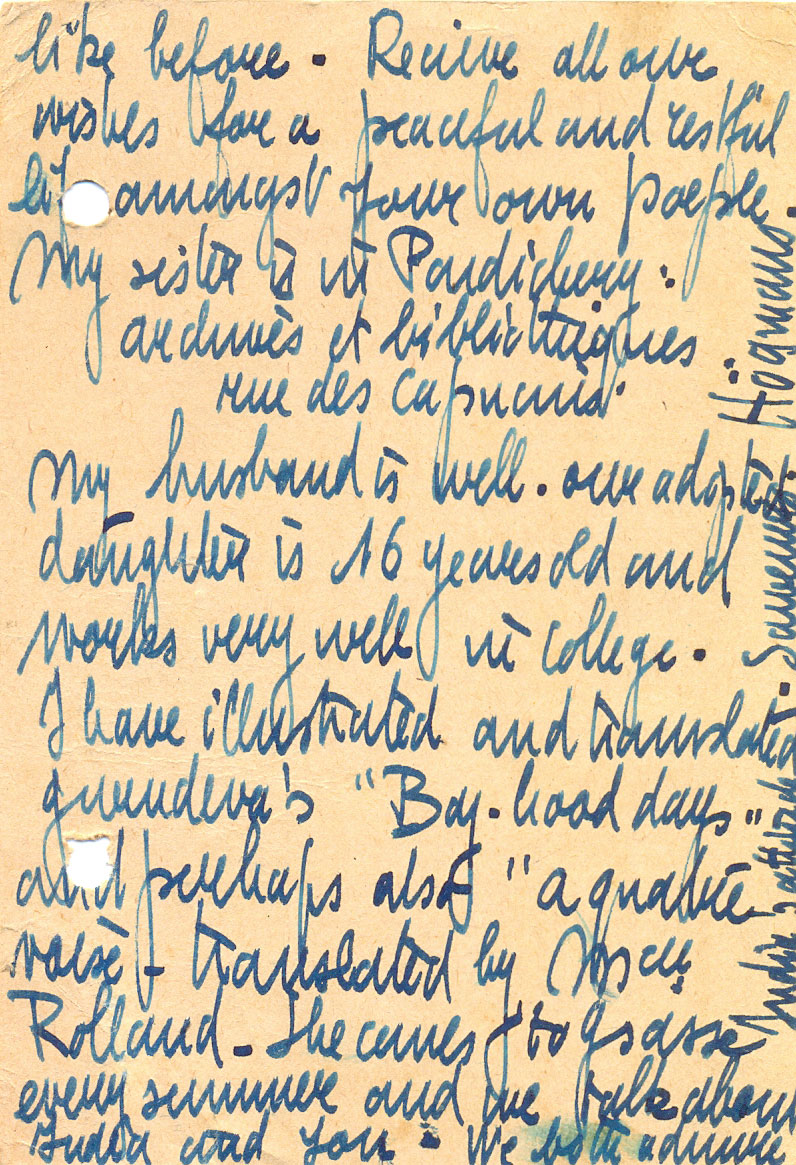 like before. Recieve all our
wishes for a peaceful and restful
lif amongst your own poeple.
My sister is in Pondichery:
archives et bibliothèques
rue des Capucins.
My husband is well. our adopted
daughter is 16 years old and
works very well in college.
I have illustrated and translated
gurudeva's "Boy-hood days"
and perhaps also "a quatre
voix" - translated by Mell
Rolland - She comes to
every summer and we talk about
India and you. We both admire
Högman